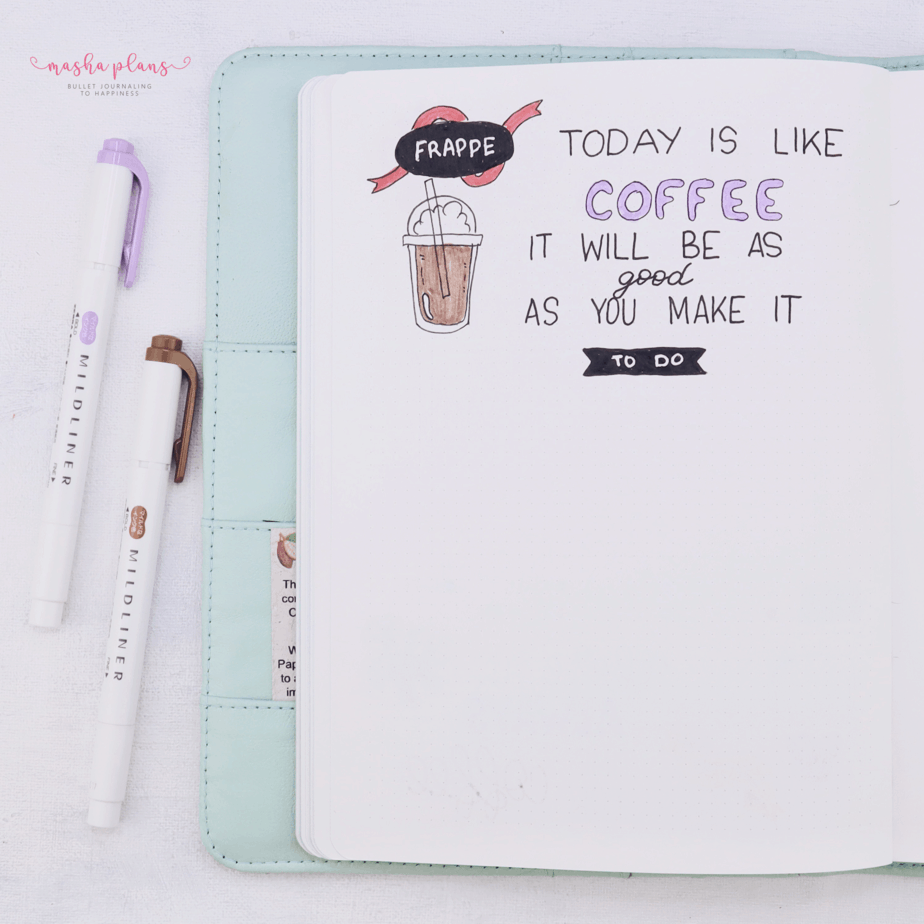 masha plans
BULLET JOURNALING
TO HAPPINESS
FRAPPE
TODAY IS LIKE
COFFEE
IT WILL BE AS
good
AS YOU MAKE IT
TO DO
MILDLINER
MILDLINER
Th
co
C
W
Pap
to a
im